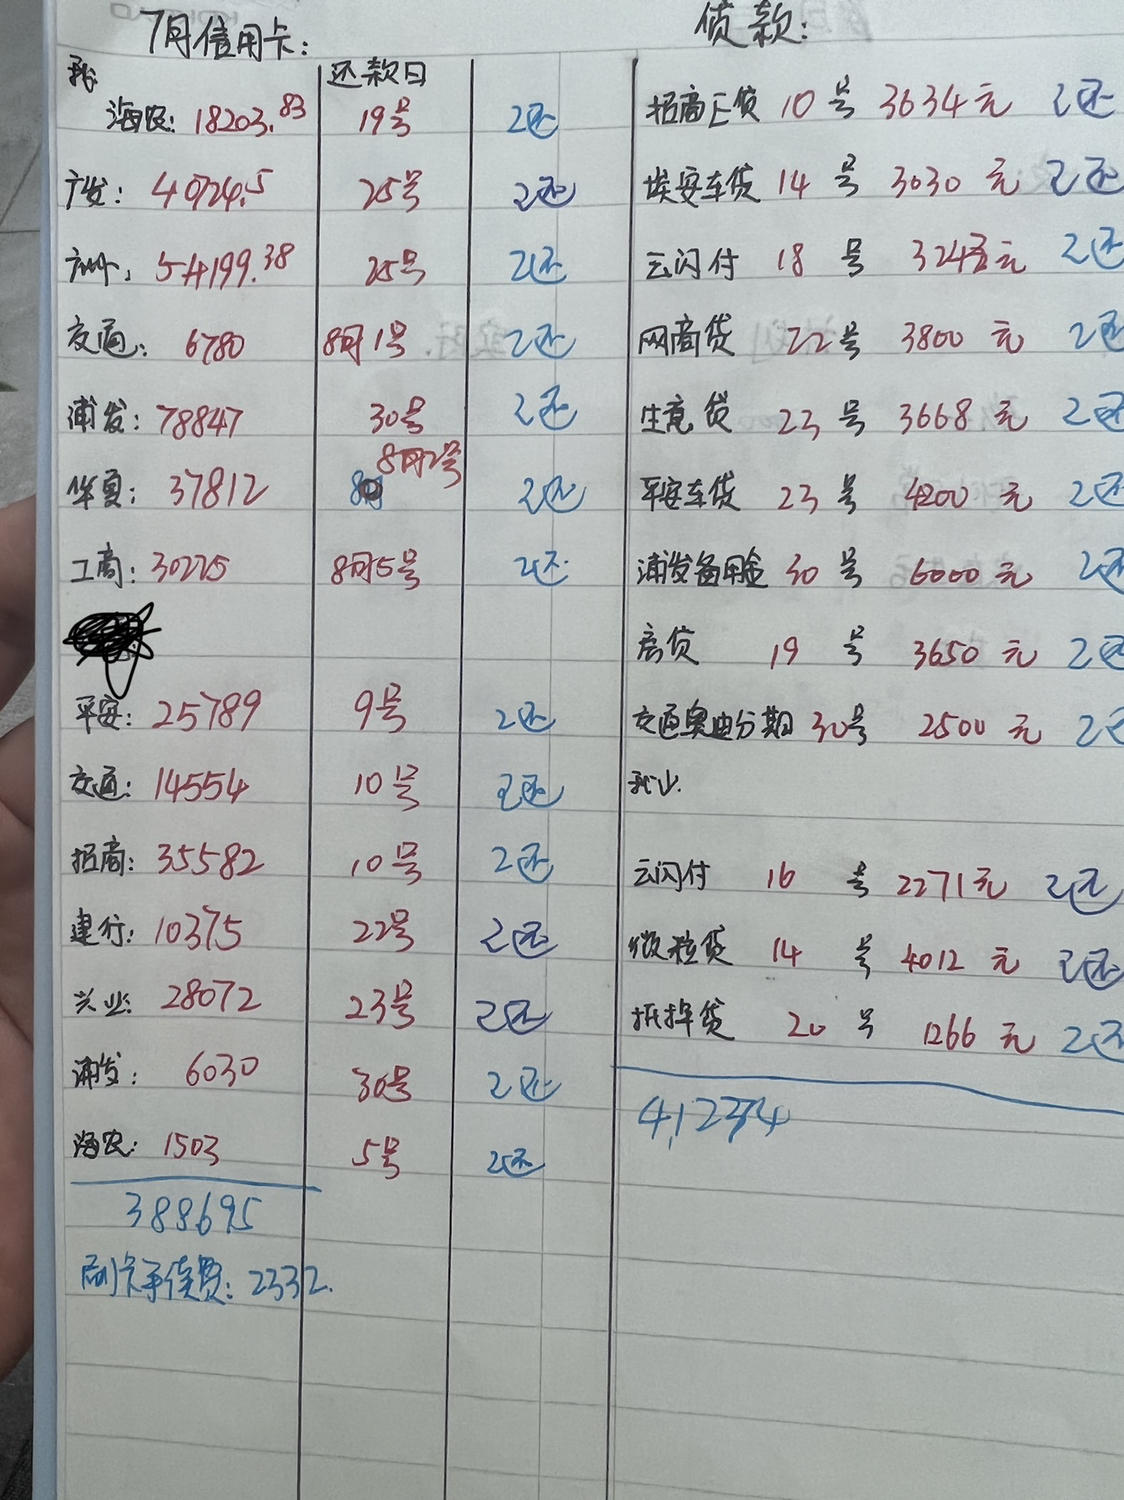 7月信用卡:
我
还款日
海农: 18203.83 19号 已还
广发: 40724.5 25号 已还
广州: 54199.38 25号 已还
交通: 6780 8月1号 已还
浦发: 78847 30号 已还
华夏: 37812 8月2号 已还
工商: 30225 8月5号 已还
平安: 25789 9号 已还
交通: 14554 10号 已还
招商: 35582 10号 已还
建行: 10375 22号 已还
兴业: 28072 23号 已还
浦发: 6030 30号 已还
海农: 1503 5号 已还
388695
刷卡手续费: 2332.
贷款:
招商E贷 10号 3634元 已还
埃安车贷 14号 3030元 已还
云闪付 18号 元 已还
网商贷 22号 3800元 已还
生意贷 23号 3668元 已还
平安车贷 23号 4200元 已还
浦发备用金 30号 6000元 已还
房贷 19号 3650元 已还
交通奥迪分期 30号 2500元 已还
云闪付 16号 2271元 已还
微粒贷 14号 4012元 已还
贷 20号 1266元 已还
41,234